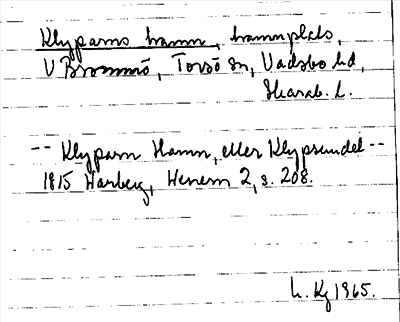 Klyparns hamn, hamnplats,
V Brommö, Torsö sn, Vadsbo hd,
Skarab. l.
-- Klyparn Hamn, eller Klypsundet --
1815 Warberg, Wenern 2, s. 208.
h. Kg 1965.